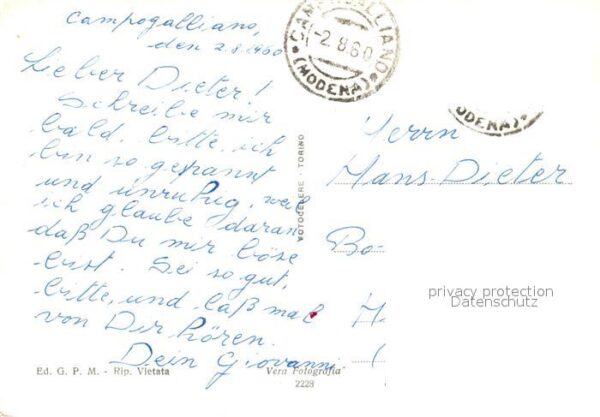 Campogalliano,
den 2.8.1960
Lieber Dieter!
Schreibe mir
bald, bitte, ich
bin so gespannt
und unruhig, weil
ich glaube daran
daß Du mir böse
bist. Sei so gut,
bitte, und laß mal
von Dir hören.
Dein Giovanni
CAMPOGALLIANO
-2.8.60
*(MODENA)*
ODENA)*
Herrn
Hans-Dieter
Bo
privacy protection
Datenschutz
- TORINO
Ed. G. P. M. - Rip. Vietata
Vera Fotografia
2228